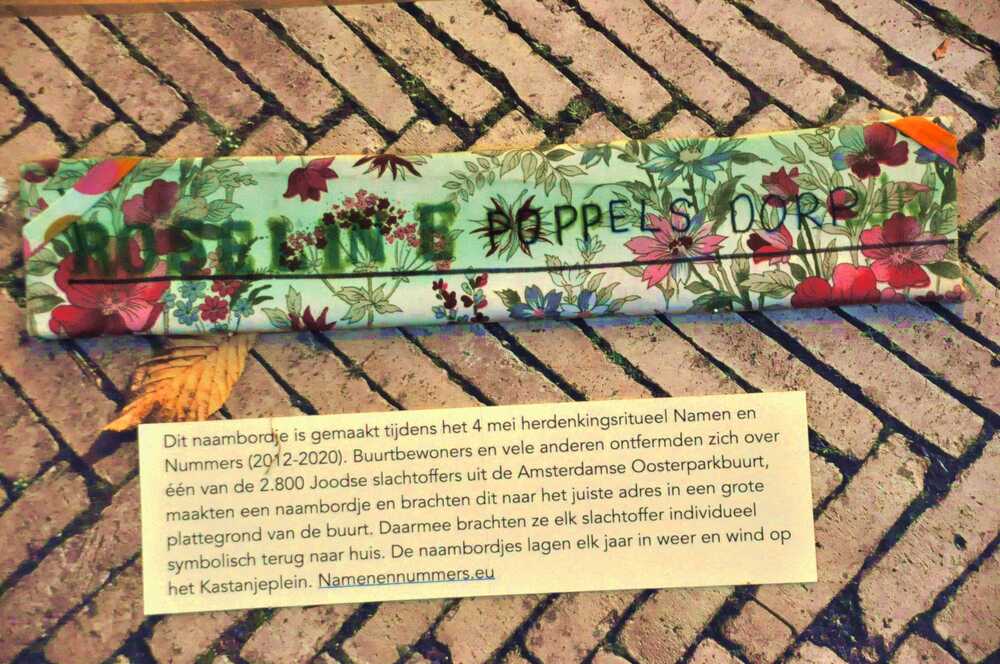 ROSELINE POPPELS DORP
Dit naambordje is gemaakt tijdens het 4 mei herdenkingsritueel Namen en
Nummers (2012-2020). Buurtbewoners en vele anderen ontfermden zich over
één van de 2.800 Joodse slachtoffers uit de Amsterdamse Oosterparkbuurt,
maakten een naambordje en brachten dit naar het juiste adres in een grote
plattegrond van de buurt. Daarmee brachten ze elk slachtoffer individueel
symbolisch terug naar huis. De naambordjes lagen elk jaar in weer en wind op
het Kastanjeplein. Namenennummers.eu